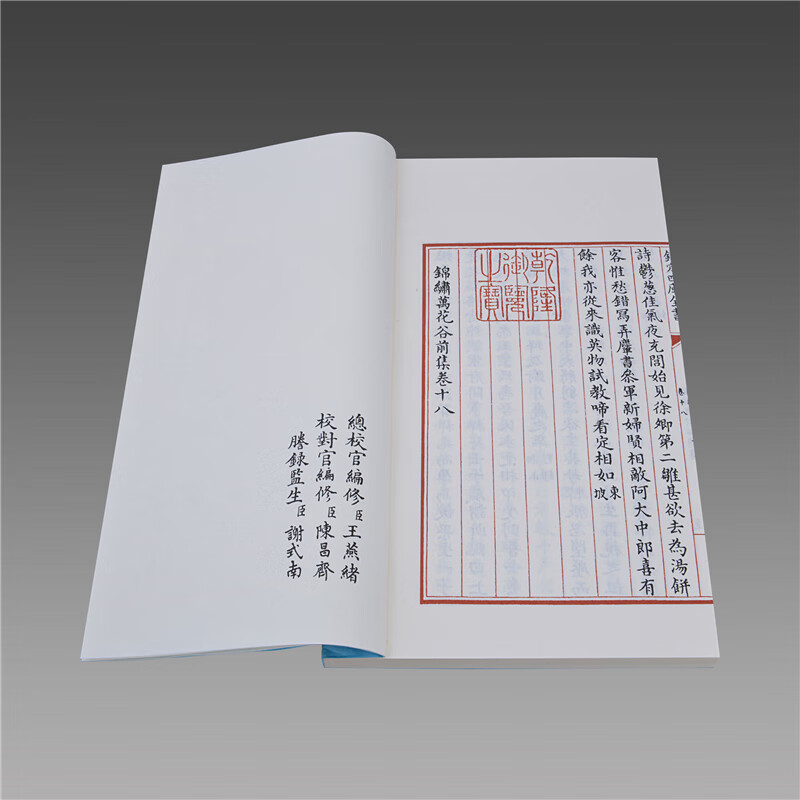 欽定四庫全書
卷十八
詩鬱葱佳氣夜充閭始見徐卿第二雛甚欲去為湯餅
客惟愁錯寫弄麞書參軍新婦賢相敵阿大中郎喜有
餘我亦從來識英物試教啼看定相如東坡
乾隆御覽之寶
錦繡萬花谷前集卷十八
總校官編修臣王燕緒
校對官編修臣陳昌齊
謄錄監生臣謝式南